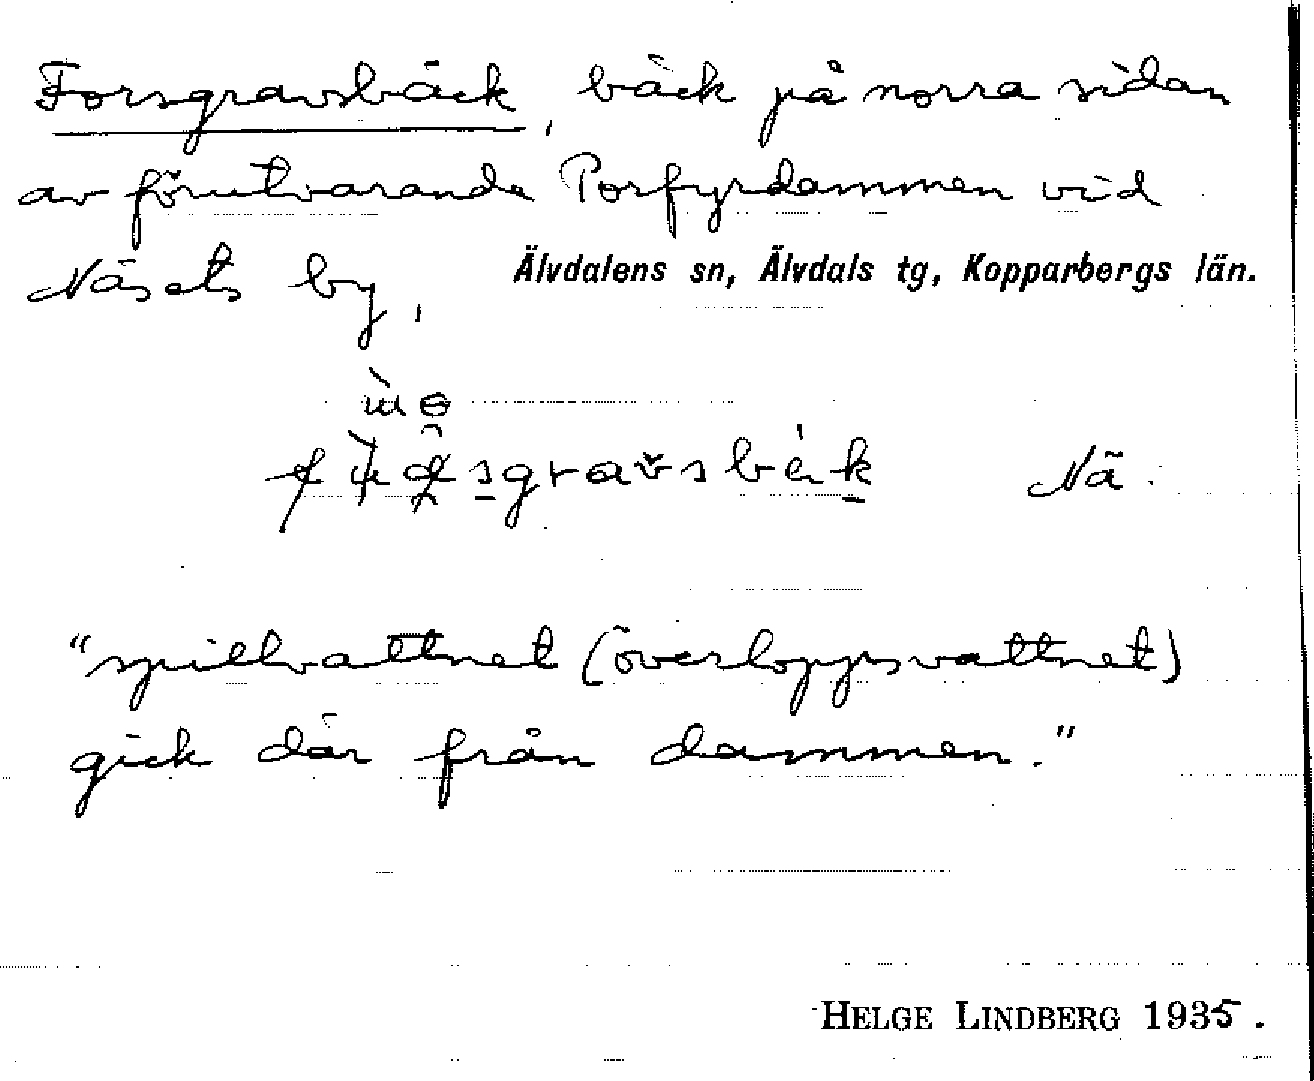 Forsgravsbäck, bäck på norra sidan
av förutvarande Porfyrdammen vid
Näsets by, Älvdalens sn, Älvdals tg, Kopparbergs län.
Nä.
"spillvattnet (överloppsvattnet)
gick där från dammen."
HELGE LINDBERG 1935.